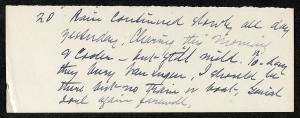 20 Rain continued slowly all day
yesterday. Clearing this morning
& Cooler – but still mild. To-day
they bury Van Ingen, I should be
there but no train or boat. Good
soul again farewell.